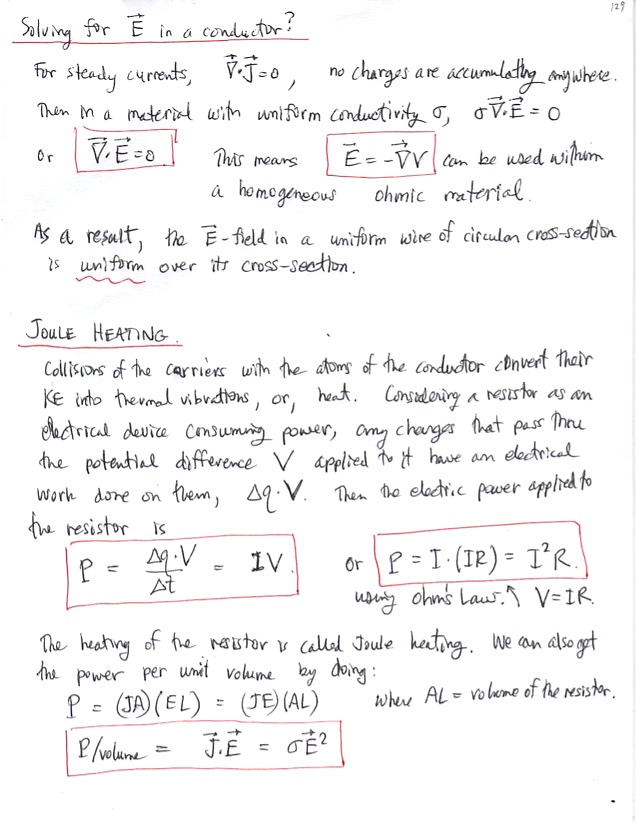 129
Solving for E⃗ in a conductor?
For steady currents, ∇⃗·J⃗=0, no charges are accumulating anywhere.
Then in a material with uniform conductivity σ, σ∇⃗·E⃗ = 0
or ∇⃗·E⃗=0 This means E⃗ = -∇⃗V can be used within
a homogeneous ohmic material.
As a result, the E⃗-field in a uniform wire of circular cross-section
is uniform over its cross-section.
JOULE HEATING.
Collisions of the carriers with the atoms of the conductor convert their
KE into thermal vibrations, or, heat. Considering a resistor as an
electrical device consuming power, any charges that pass thru
the potential difference V applied to it have an electrical
work done on them, Δq·V. Then the electric power applied to
the resistor is
P = Δq·V/Δt = IV. or P = I·(IR) = I²R.
using Ohm's Law.↑ V=IR.
The heating of the resistor is called Joule heating. We can also get
the power per unit volume by doing:
P = (JA)(EL) = (JE)(AL) where AL = volume of the resistor.
P/volume = J⃗·E⃗ = σE⃗²